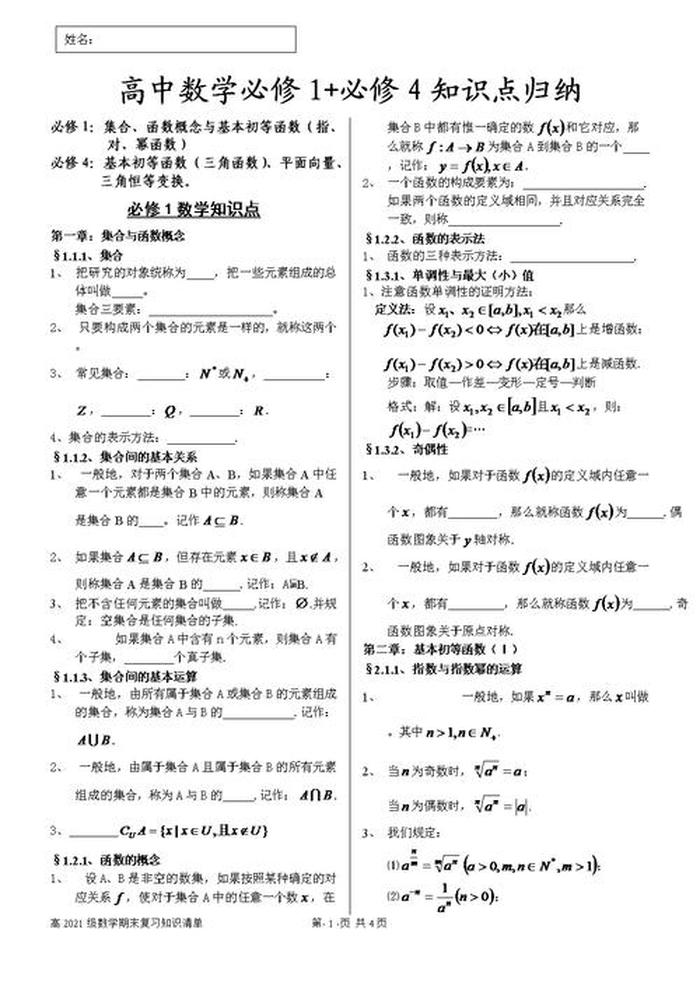 姓名：
高中数学必修 1+必修 4 知识点归纳
必修 1：集合、函数概念与基本初等函数（指、
对、幂函数）
必修 4：基本初等函数（三角函数）、平面向量、
三角恒等变换。
必修 1 数学知识点
第一章：集合与函数概念
§1.1.1、集合
1、 把研究的对象统称为____，把一些元素组成的总
体叫做_____。
集合三要素：____________________。
2、 只要构成两个集合的元素是一样的，就称这两个
。
3、 常见集合：________：N* 或 N₊，__________：
Z，________：Q，________：R．
4、集合的表示方法：___________．
§1.1.2、集合间的基本关系
1、 一般地，对于两个集合 A、B，如果集合 A 中任
意一个元素都是集合 B 中的元素，则称集合 A
是集合 B 的____。记作 A ⊆ B．
2、 如果集合 A ⊆ B，但存在元素 x ∈ B，且 x ∉ A，
则称集合 A 是集合 B 的______.记作：A⫋B.
3、 把不含任何元素的集合叫做_____.记作：∅.并规
定：空集合是任何集合的子集.
4、 如果集合 A 中含有 n 个元素，则集合 A 有
个子集，________个真子集.
§1.1.3、集合间的基本运算
1、 一般地，由所有属于集合 A 或集合 B 的元素组成
的集合，称为集合 A 与 B 的___________.记作：
A∪B．
2、 一般地，由属于集合 A 且属于集合 B 的所有元素
组成的集合，称为 A 与 B 的_____.记作：A∩B．
3、________C_U A = {x | x ∈ U, 且 x ∉ U}
§1.2.1、函数的概念
1、 设 A、B 是非空的数集，如果按照某种确定的对
应关系 f，使对于集合 A 中的任意一个数 x，在
集合 B 中都有惟一确定的数 f(x) 和它对应，那
么就称 f : A → B 为集合 A 到集合 B 的一个____
，记作：y = f(x), x ∈ A．
2、 一个函数的构成要素为：____________________.
如果两个函数的定义域相同，并且对应关系完全
一致，则称__________________.
§1.2.2、函数的表示法
1、 函数的三种表示方法：____________________.
§1.3.1、单调性与最大（小）值
1、注意函数单调性的证明方法：
定义法：设 x₁、x₂ ∈ [a,b], x₁ < x₂ 那么
f(x₁) − f(x₂) < 0 ⇔ f(x)在[a,b] 上是增函数；
f(x₁) − f(x₂) > 0 ⇔ f(x)在[a,b] 上是减函数.
步骤：取值—作差—变形—定号—判断
格式：解：设 x₁, x₂ ∈ [a,b] 且 x₁ < x₂，则：
f(x₁) − f(x₂) =…
§1.3.2、奇偶性
1、 一般地，如果对于函数 f(x) 的定义域内任意一
个 x，都有________，那么就称函数 f(x) 为______.偶
函数图象关于 y 轴对称.
2、 一般地，如果对于函数 f(x) 的定义域内任意一
个 x，都有_________，那么就称函数 f(x) 为______.奇
函数图象关于原点对称.
第二章：基本初等函数（Ⅰ）
§2.1.1、指数与指数幂的运算
1、 一般地，如果 xⁿ = a，那么 x 叫做
。其中 n > 1, n ∈ N₊．
2、 当 n 为奇数时，ⁿ√aⁿ = a；
当 n 为偶数时，ⁿ√aⁿ = |a|．
3、 我们规定：
⑴ a^(n/m) = ᵐ√aⁿ (a > 0, m, n ∈ N*, m > 1)；
⑵ a⁻ⁿ = 1/aⁿ (n > 0)；
高 2021 级数学期末复习知识清单 第·1·页 共 4 页